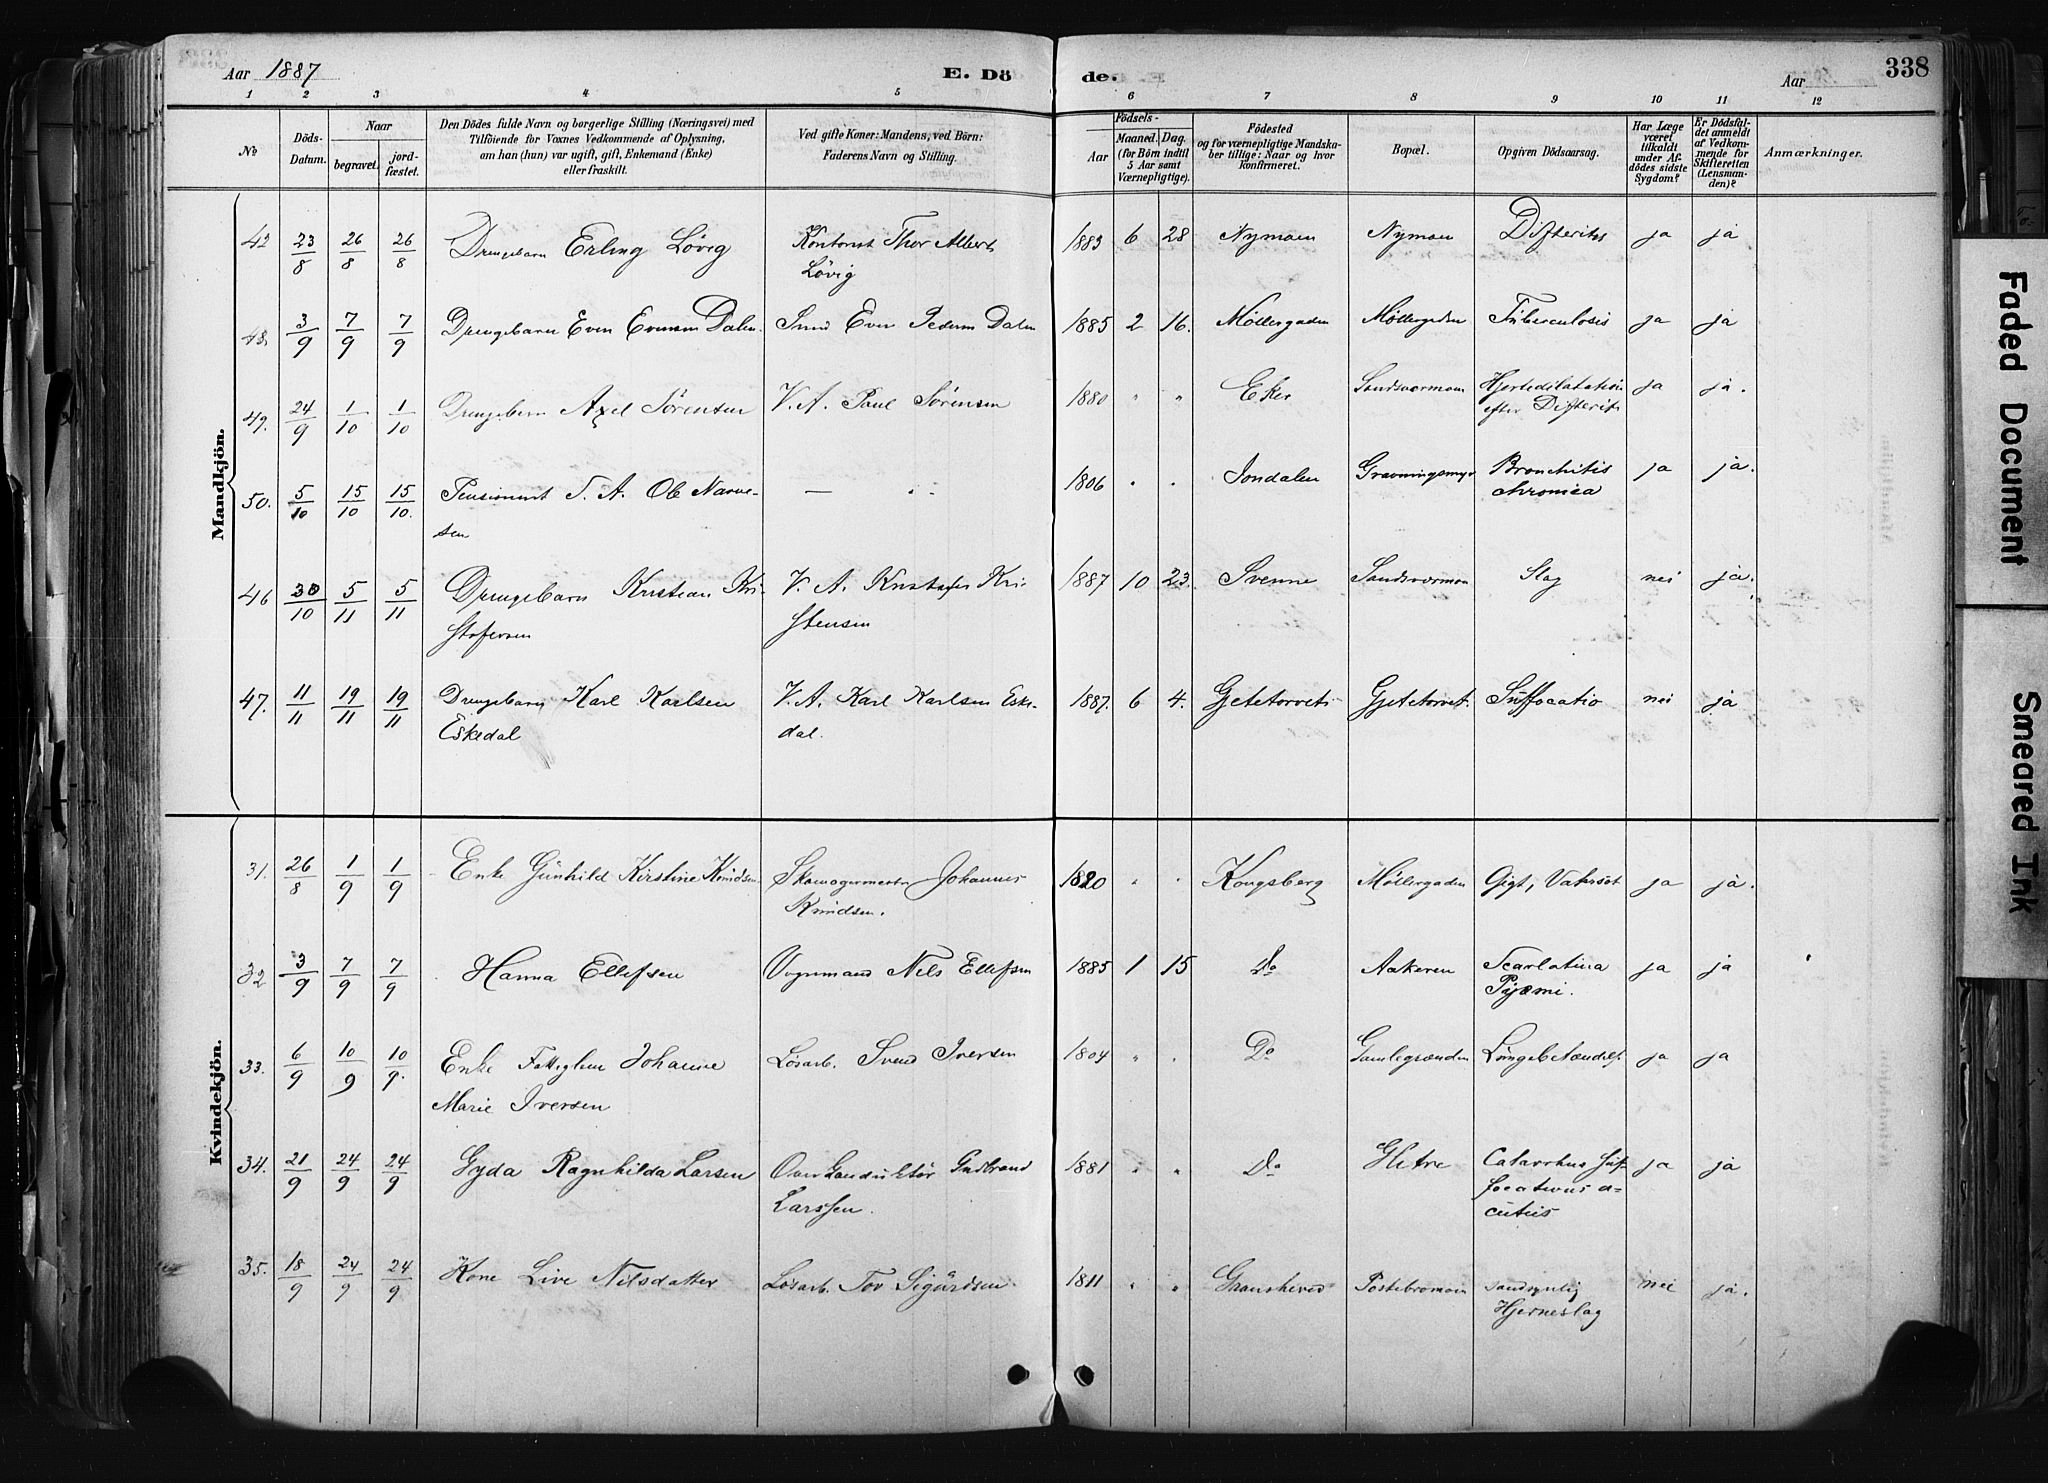 Aar 1887 E. Döde. Aar 338
1 2 3 4 5 6 7 8 9 10 11 12
No
Döds-Datum.
Naar begravet. jordfæstet.
Den Dödes fulde Navn og borgerlige Stilling (Næringsvei) med
Tilföiende för Voxnes Vedkommende af Oplysning,
om han (hun) var ugift, gift, Enkemand (Enke)
eller fraskilt.
Ved gifte Koner: Mandens, ved Börn:
Faderens Navn og Stilling.
Födsels-
Aar Maaned. Dag.
(for Börn indtil
5 Aar samt
Værnepligtige).
Födested
og for værnepligtige Mandskaber tillige: Naar og hvor
konfirmeret.
Bopæl.
Opgiven Dödsaarsag.
Har Læge været tilkaldt under Afdödes sidste Sygdom?
Er Dödsfaldet anmeldt af Vedkommende for Skifteretten (Lensmanden)?
Anmærkninger.
Mandkjön.
42 23/8 26/8 26/8 Drengebarn Erling Lövig Kontorist Thor Albert 1883 6 28 Nymoen Nymoen Difterites ja ja
Lövig
48. 3/9 7/9 7/9 Drengebarn Even Evensen Dalen. Smed Even Pedersen Dalen 1885 2 16. Möllergaden Möllergaden Tuberculosis ja ja
49. 24/9 1/10 1/10 Drengebarn Axel Sörensen V. A. Paul Sörensen 1880 " " Eker Sandsværmoen Hjertedilatation ja ja.
efter Difterit
50. 5/10 15/10 15/10. Pensionist S. A. Ole Narve- — " 1806 " " Jondalen Gravningsmyr Bronchitis ja ja.
sen chronica
46 30/10 5/11 5/11 Drengebarn Kristian Kri- V. A. Kristofer Kri- 1887 10 23. Svenne Sandsværmoen Slag nei ja.
stofersen stensen
47. 11/11 19/11 19/11 Drengebarn Karl Karlsen V. A. Karl Karlsen Eske- 1887. 6 4. Gjetetorvet Gjetetorvet. Suffocatio nei ja
Eskedal dal.
Kvindekjön.
31. 26/8 1/9 1/9 Enke Gunhild Kirstine Knudsen Skomagermester Johannes 1820 " " Kongsberg Möllergaden Gigt, Vatersot ja ja.
Knudsen.
32 3/9 7/9 7/9 Hanna Ellefsen Vognmand Nils Ellefsen 1885 1 15 Do Aakeren Scarlatina ja ja
Pyæmi.
33. 6/9 10/9 10/9. Enke Fattiglem Johanne Lösarb. Svend Iversen 1804 " " Do Gamlegrænden Lungebetændelse ja ja
Marie Iversen
34. 21/9 24/9 24/9 Gyda Ragnhilda Larsen Overkonduktör Gudbrand 1881 " " Do Glitre Catarrhus suf- ja ja
Larssen. focativus a-
cutus
35. 18/9 24/9 24/9 Kone Live Nilsdatter Lösarb. Tov Sigurdsen 1811 " " Gransherred Postebromoen sandsynlig nei ja.
Hjerneslag
Faded Document
Smeared Ink